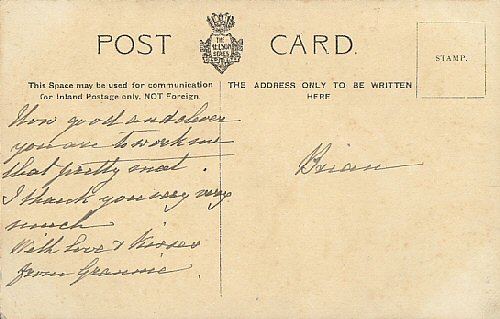 POST CARD.
THE
NELSON
SERIES
STAMP.
This Space may be used for communication
for Inland Postage only, NOT Foreign.
THE ADDRESS ONLY TO BE WRITTEN
HERE
How good & clever
you are to work me
that pretty mat.
I thank you very very
much
With Love & Kisses
from Grannie
Brian